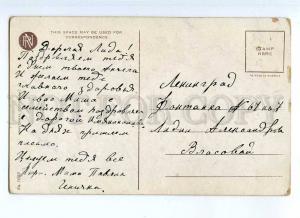 THIS SPACE MAY BE USED FOR
CORRESPONDENCE.
STAMP
HERE
Дорогая Лида!
Поздравляем тебя
с днем твоего ангела
и желаем тебе
главного здоровья
Маша
семейством поздравляем
с дорогой
На днях пришлем
письмо.
Целуем тебя все
Мама
Ленинград
Фонтанка
Лидии Александровне
Власовой